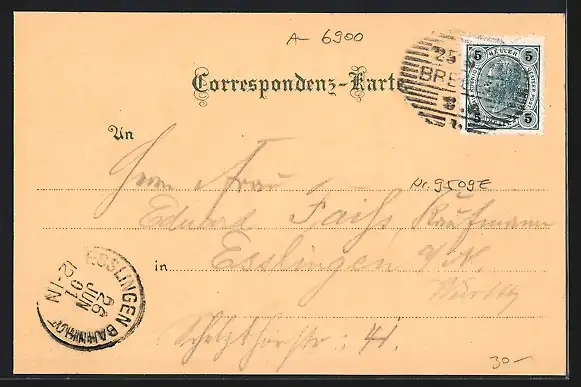 A- 6900
5 HELLER 5
25
BRE
Correspondenz-Karte
5 5
An
Herrn Frau
Nr. 9509E
Eduard Kaufmann
in Esslingen a/N.
Württbg
ESSLINGEN BAHNHOF
26
JUN
01
12-1N
41.
30-